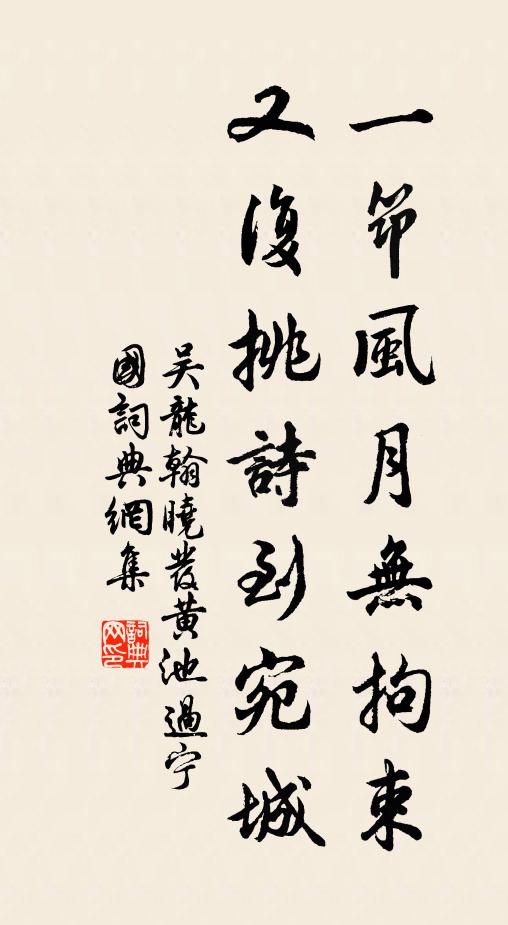 一筇風月無拘束
又復挑詩到宛城
吴龍翰曉發黄池過宁
國詞典網集
詞典
网印